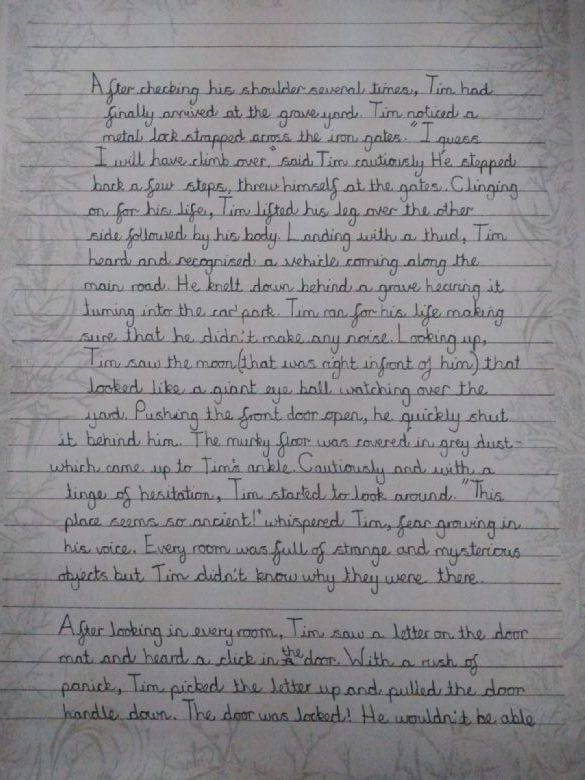 After checking his shoulder several times, Tim had
finally arrived at the grave yard. Tim noticed a
metal lock strapped across the iron gates. "I guess
I will have climb over," said Tim cautiously He stepped
back a few steps, threw himself at the gates. Clinging
on for his life, Tim lifted his leg over the other
side followed by his body. Landing with a thud, Tim
heard and recognised a vehicle coming along the
main road. He knelt down behind a grave hearing it
turning into the car park. Tim ran for his life making
sure that he didn't make any noise. Looking up,
Tim saw the moon (that was right infront of him) that
looked like a giant eye ball watching over the
yard. Pushing the front door open, he quickly shut
it behind him. The murky floor was covered in grey dust-
which came up to Tim's ankle. Cautiously and with a
tinge of hesitation, Tim started to look around. "This
place seems so ancient!" whispered Tim, fear growing in
his voice. Every room was full of strange and mysterious
objects but Tim didn't know why they were there.
After looking in every room, Tim saw a letter on the door
mat and heard a click in the door. With a rush of
panick, Tim picked the letter up and pulled the door
handle down. The door was locked! He wouldn't be able